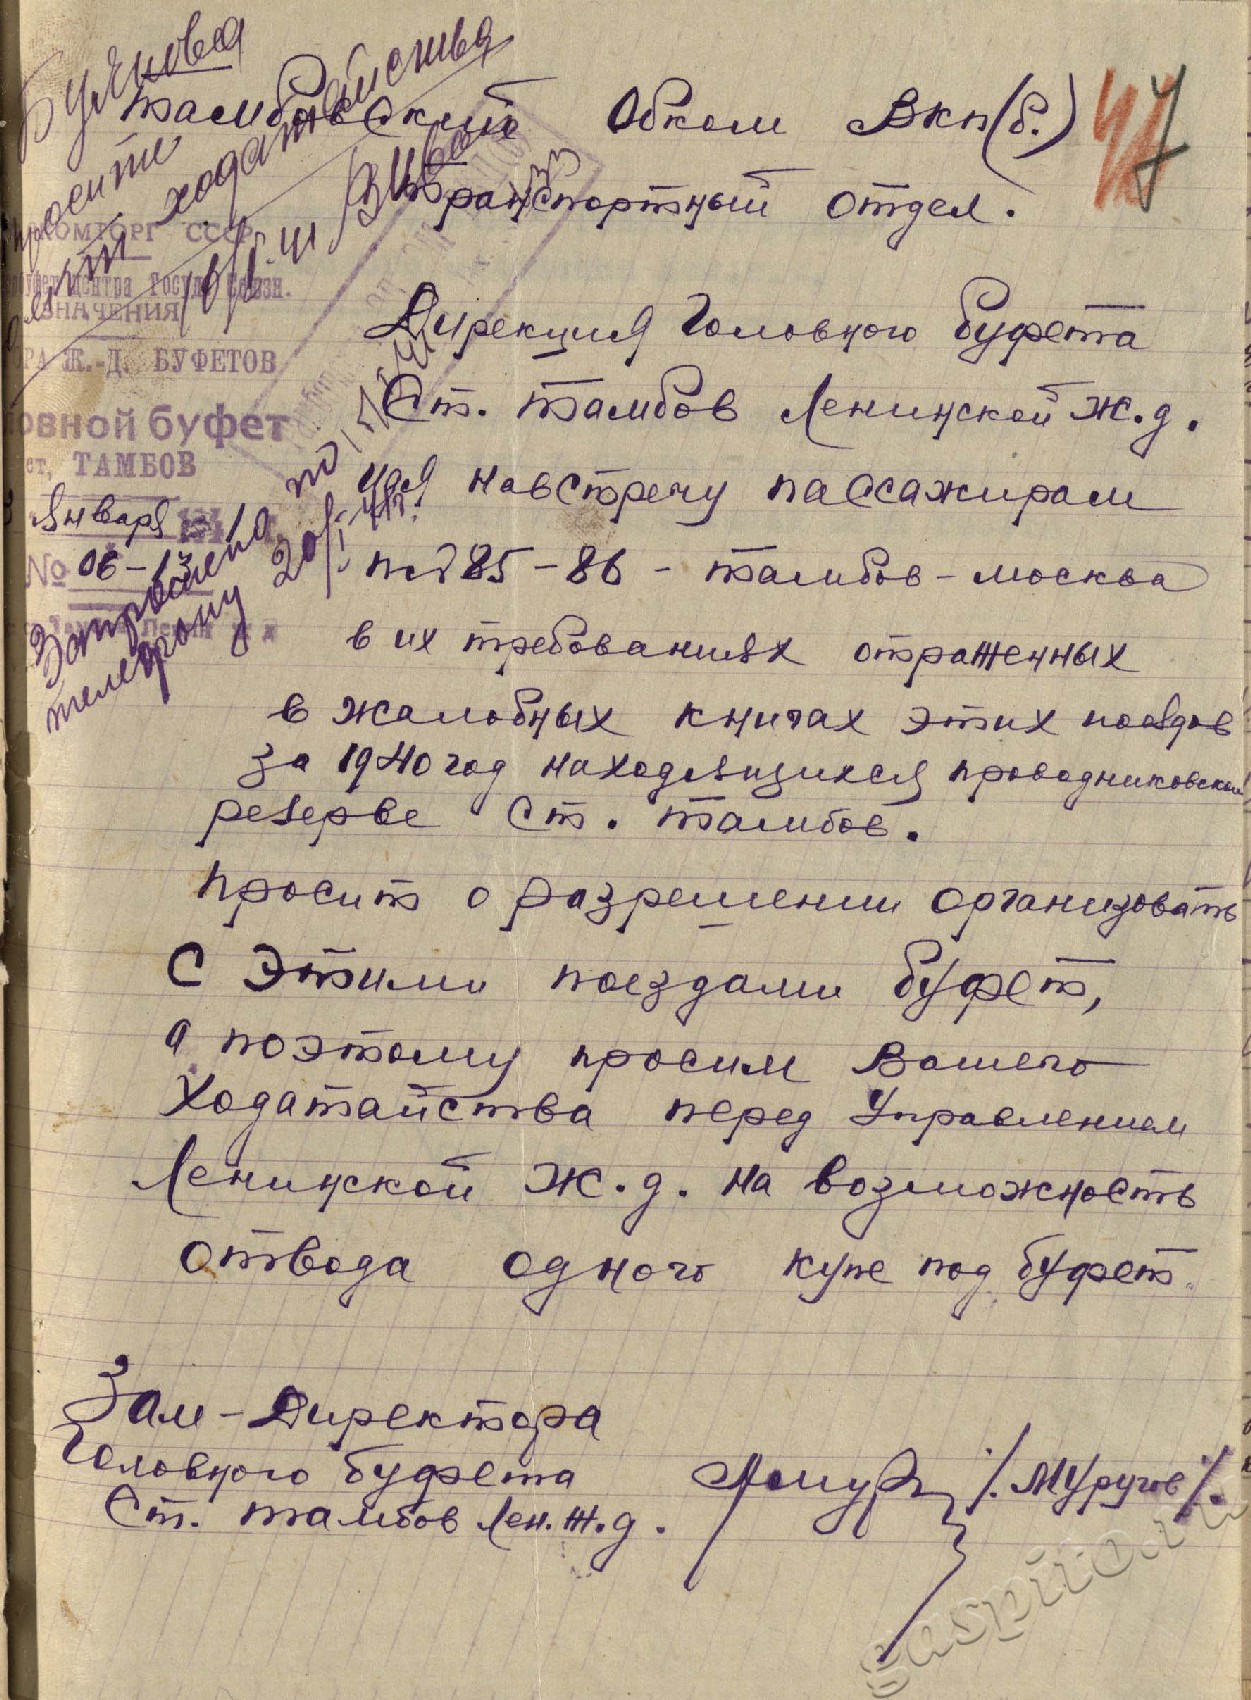 Булякова
просити
ходатайства
Тамбовский Обком ВКП(б.)
Транспортный отдел.
47
КОМТОРГ СССР
ЗНАЧЕНИЯ
РА Ж.-Д. БУФЕТОВ
овной буфет
ет, ТАМБОВ
Января
№ 06-13
Запрошено по
телефону 20/I-41г.
Дирекция Головного буфета
Ст. Тамбов Ленинской ж.д.
идя навстречу пассажирам
п.п. 85-86 - Тамбов - Москва
в их требованиях отраженных
в жалобных книгах этих поездов
за 1940 год находящихся проводниковском
резерве ст. Тамбов.
Просит о разрешении организовать
с этими поездами буфет,
а поэтому просим Вашего
Ходатайства перед Управлением
Ленинской Ж.д. на возможность
отвода одного купе под буфет.
Зам-Директора
Головного буфета
Ст. Тамбов Лен.Ж.д.
/.Муругов/.
gaspito.ru